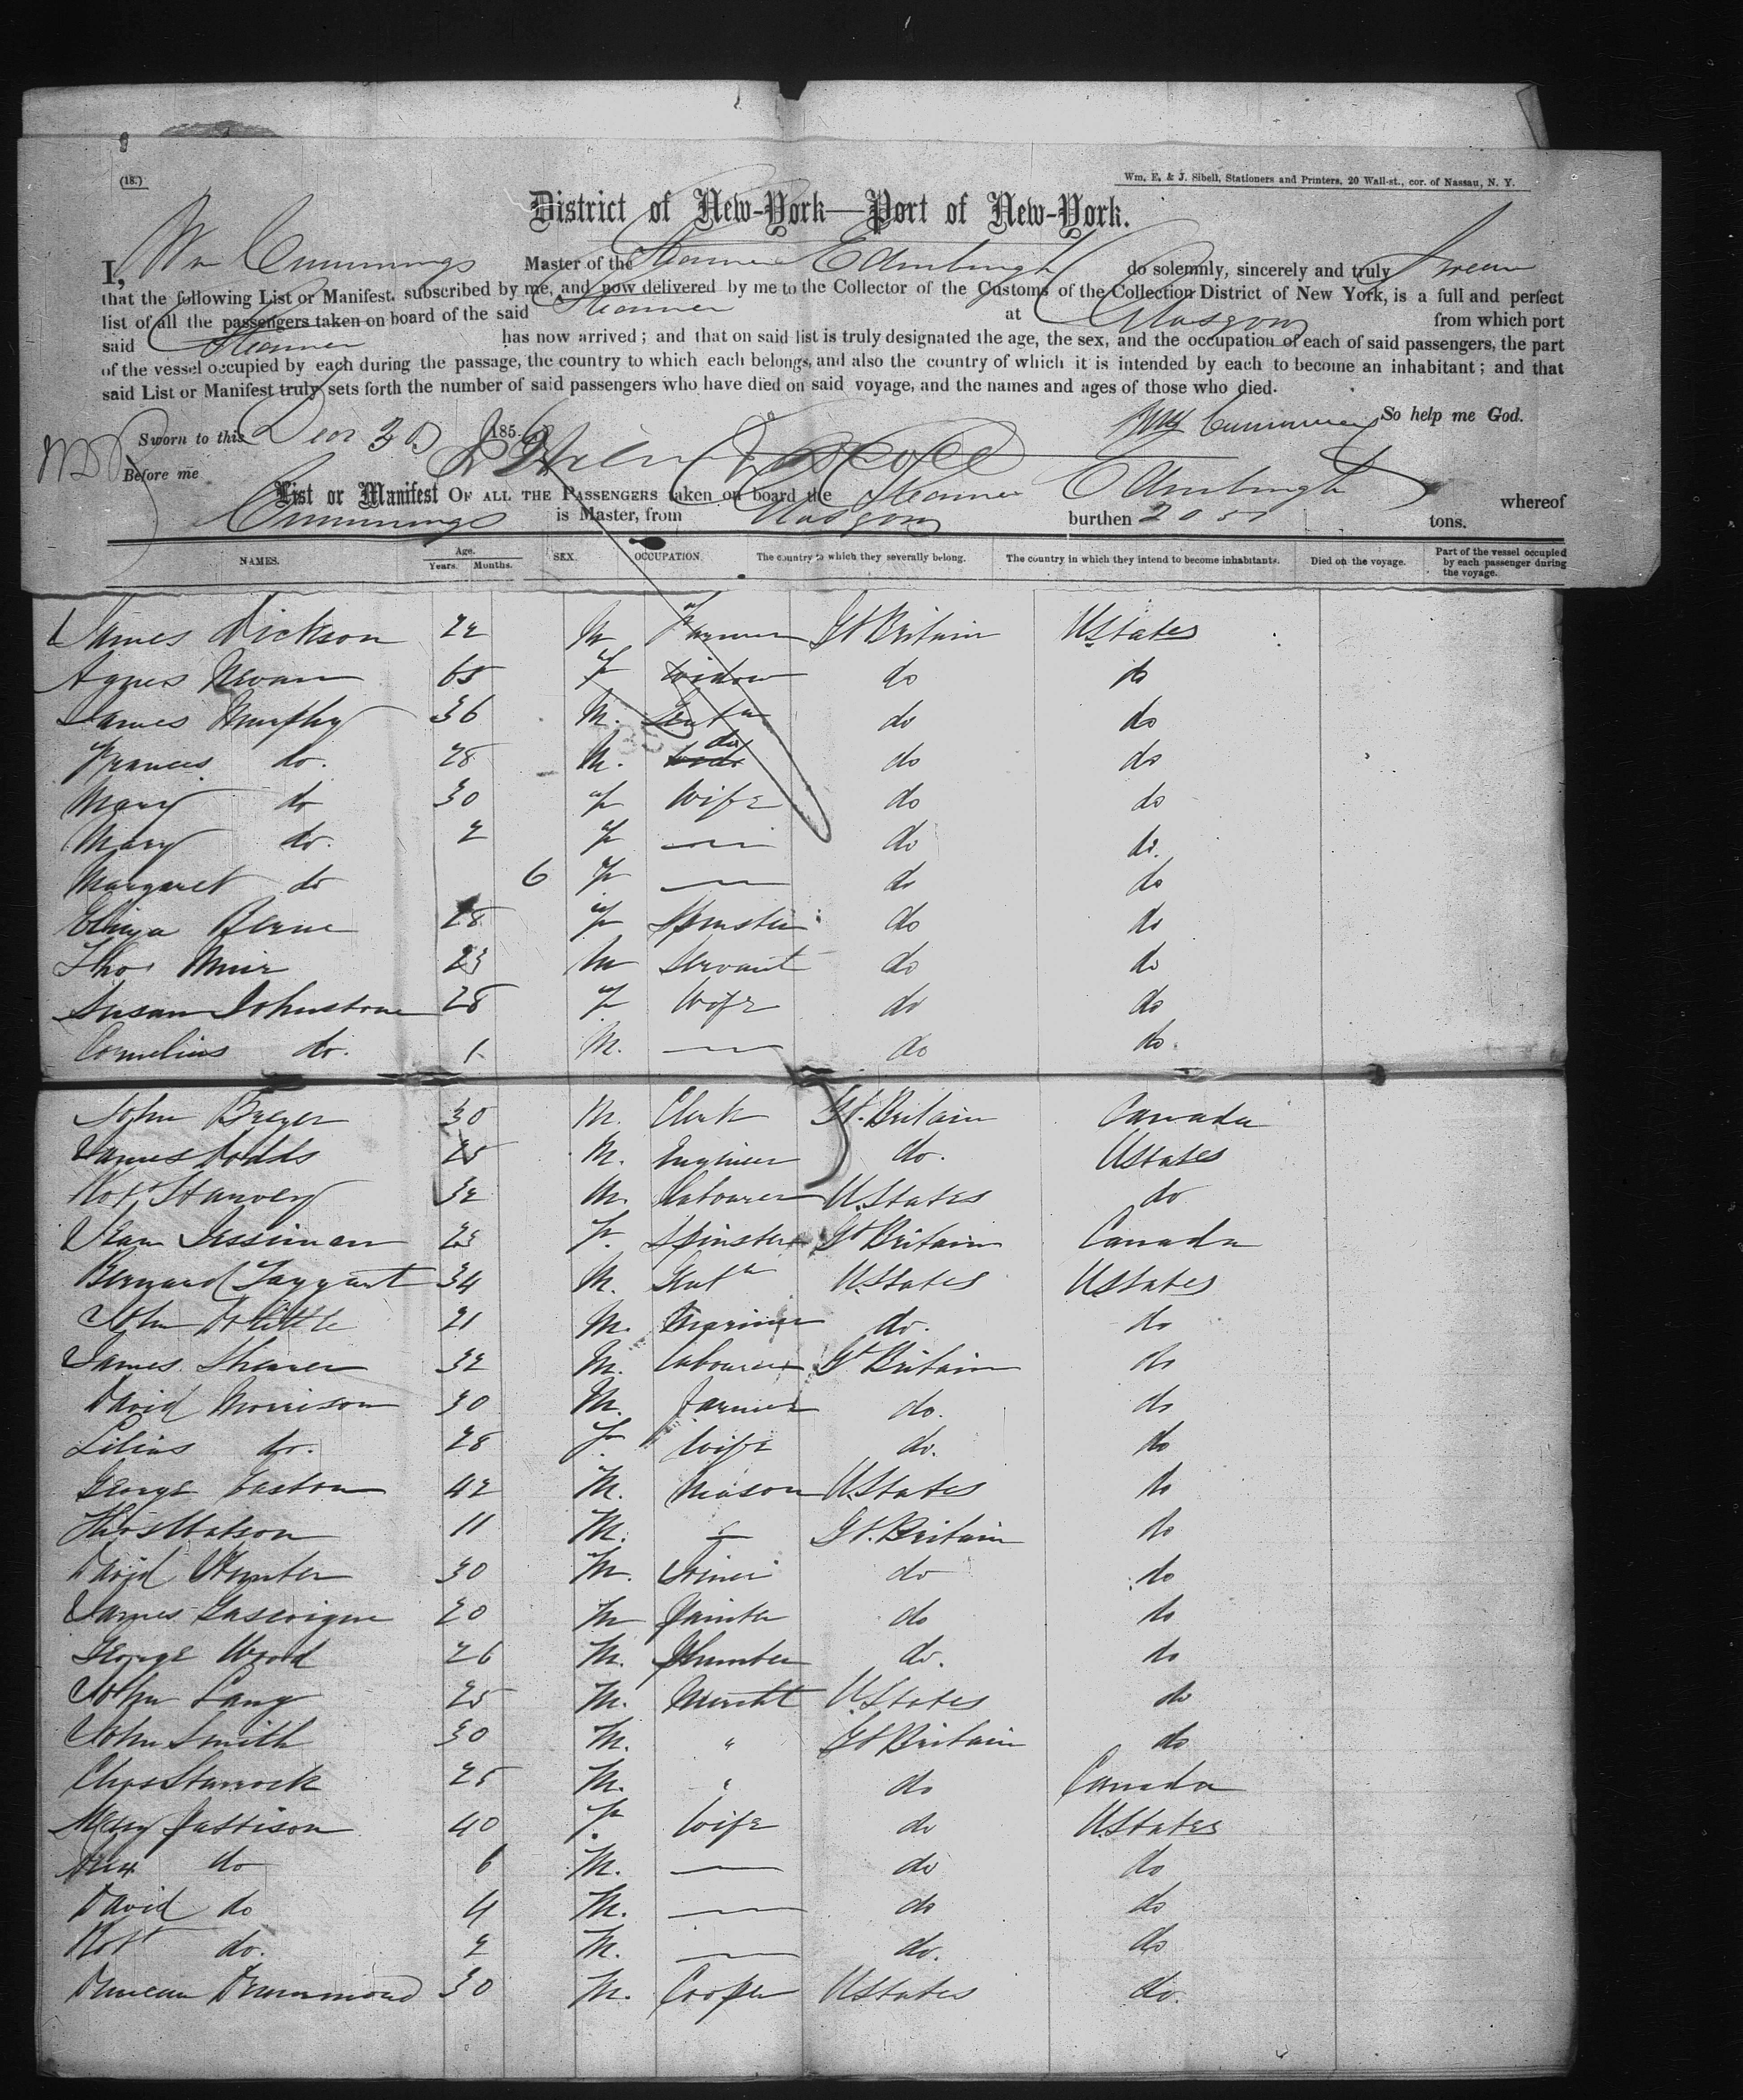 (18.)
Wm. E. & J. Sibell, Stationers and Printers, 20 Wall-st., cor. of Nassau, N. Y.
District of New-York—Port of New-York.
I, Wm Cummings Master of the Steamer Edinburgh do solemnly, sincerely and truly Swear
that the following List or Manifest, subscribed by me, and now delivered by me to the Collector of the Customs of the Collection District of New York, is a full and perfect
list of all the passengers taken on board of the said Steamer at Glasgow from which port
said Steamer has now arrived; and that on said list is truly designated the age, the sex, and the occupation of each of said passengers, the part
of the vessel occupied by each during the passage, the country to which each belongs, and also the country of which it is intended by each to become an inhabitant; and that
said List or Manifest truly sets forth the number of said passengers who have died on said voyage, and the names and ages of those who died.
Wm Cummings So help me God.
Sworn to this Dec 30 185
Before me
List or Manifest OF ALL THE PASSENGERS taken on board the Steamer Edinburgh whereof
Cummings is Master, from Glasgow burthen tons.
NAMES. Age. Years. Months. SEX. OCCUPATION. The country to which they severally belong. The country in which they intend to become inhabitants. Died on the voyage. Part of the vessel occupied by each passenger during the voyage.
James Dickson 22 M Farmer Gt Britain U.States
Agnes 65 F Widow do do
James Murphy 36 M. Gentn do do
Francis do. 28 M. do do do
Mary do 30 F Wife do do
Mary do. 2 F — do do.
Margaret do 6 F — do do
28 F Spinster do do
Thos Muir 23 M Servant do do
Susan Johnstone 28 F Wife do do
Cornelius do. 1 M. — do do.
John 30 M. Clerk Gt. Britain Canada
James Dodds 25 M. Engineer do. U.States
Robt 32 M. Labourer U.States do
Jean Jessiman 23 F. Spinster Gt Britain Canada
Bernard Taggart 34 M. Gentn U.States U.States
John Dolittle 21 M. Mariner do. do
James Shearer 32 M. Labourer Gt Britain do
David Morrison 30 M. Farmer do. do
Lilias do. 28 F. Wife do. do
George Easton 42 M. Mason U.States do
Thos Watson 11 M. — Gt. Britain do
David Hunter 30 M. Joiner do do
James Gascoigne 20 M Painter do do
George Wood 26 M. Plumber do. do
John Lang 25 M. Mercht U.States do
John Smith 30 M. " Gt Britain do
Chas Sturrock 25 M. " do Canada
Mary Pattison 40 F. Wife do U.States
Alex do 6 M. — do do
David do 4 M. — do do
Robt do. 2 M. — do. do
Duncan Drummond 30 M. Cooper U.States do.